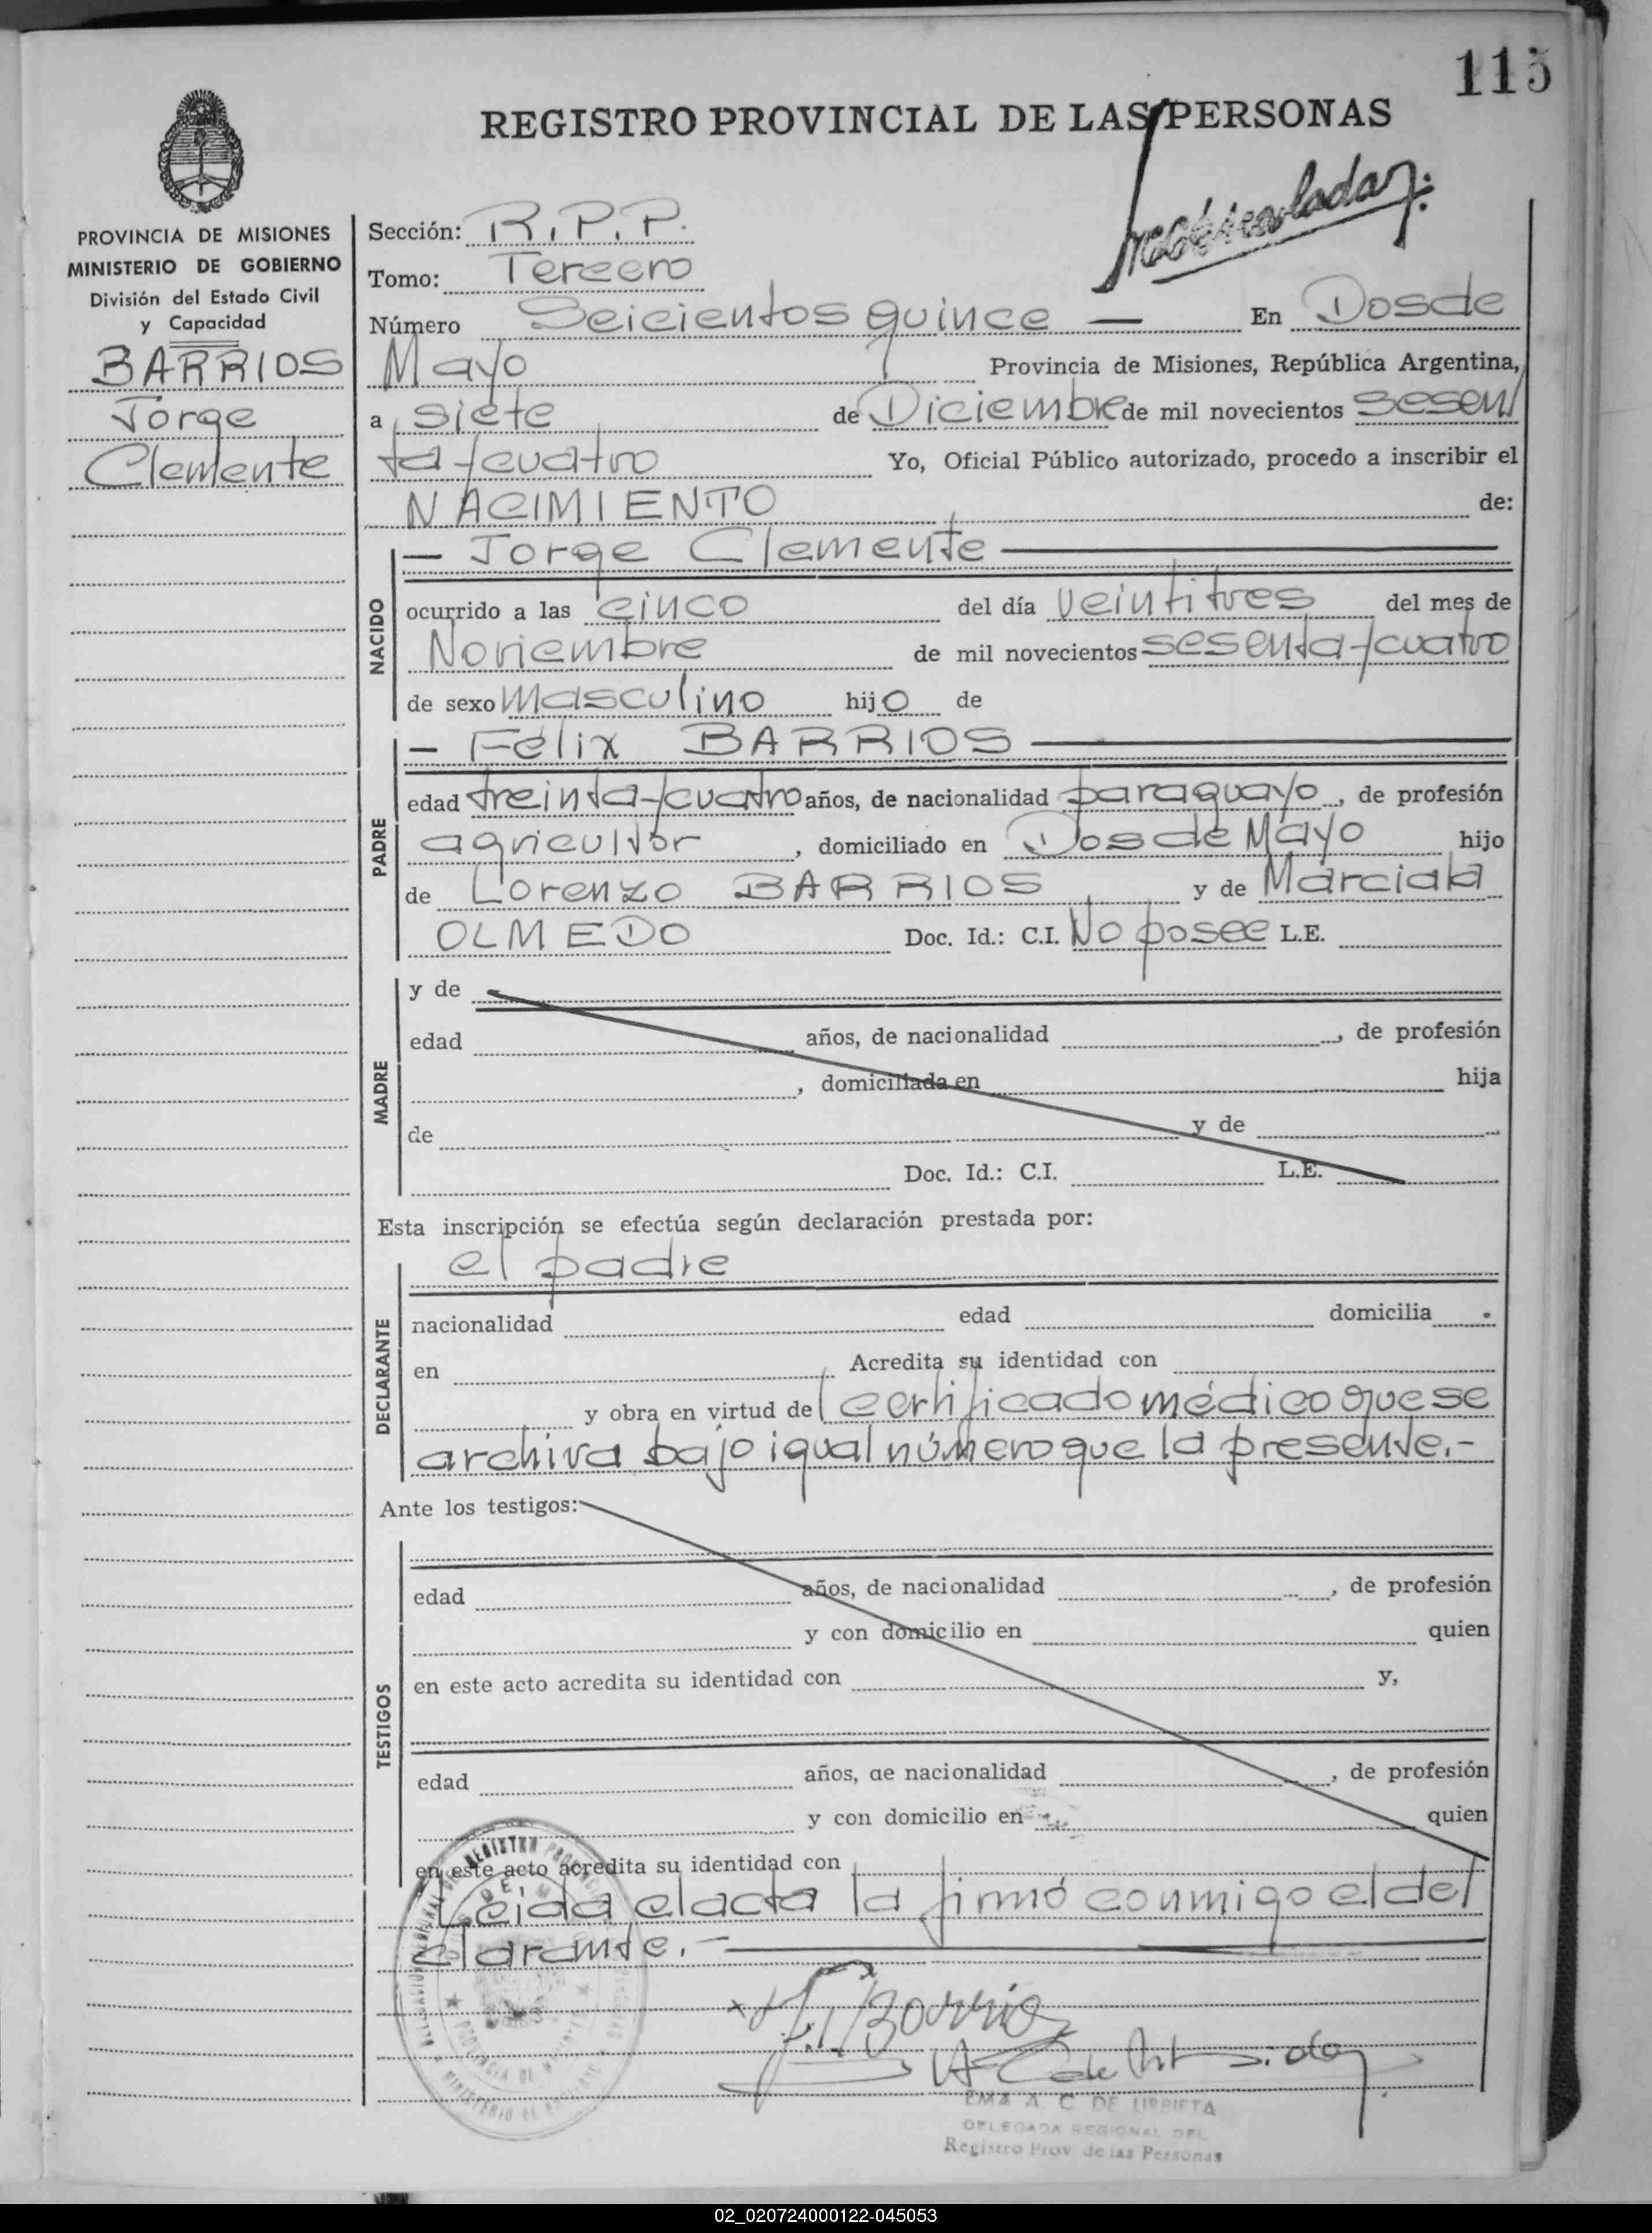 115
REGISTRO PROVINCIAL DE LAS PERSONAS
PROVINCIA DE MISIONES
MINISTERIO DE GOBIERNO
División del Estado Civil
y Capacidad
BARRIOS
Jorge
Clemente
Sección: R.P.P.
Tomo: Tercero
Número Seicientos quince — En Dos de
Mayo Provincia de Misiones, República Argentina,
a siete de Diciembre de mil novecientos sesen/
ta y cuatro Yo, Oficial Público autorizado, procedo a inscribir el
NACIMIENTO de:
NACIDO
— Jorge Clemente —
ocurrido a las cinco del día veintitres del mes de
Noviembre de mil novecientos sesenta y cuatro
de sexo Masculino hijo de
PADRE
— Félix BARRIOS —
edad treinta y cuatro años, de nacionalidad paraguayo, de profesión
agricultor, domiciliado en Dos de Mayo hijo
de Lorenzo BARRIOS y de Marciala
OLMEDO Doc. Id.: C.I. No posee L.E.
MADRE
y de
edad años, de nacionalidad , de profesión
, domiciliada en hija
de y de
Doc. Id.: C.I. L.E.
Esta inscripción se efectúa según declaración prestada por:
DECLARANTE
el padre
nacionalidad edad domicilia
en Acredita su identidad con
y obra en virtud del certificado médico que se
archiva bajo igual número que la presente.-
Ante los testigos:
TESTIGOS
edad años, de nacionalidad , de profesión
y con domicilio en quien
en este acto acredita su identidad con y,
edad años, de nacionalidad , de profesión
y con domicilio en quien
en este acto acredita su identidad con
Leida el acta la firmó conmigo el de/
clarante.-
Barrios
EMA A. C. DE URRIETA
DELEGADA REGIONAL DEL
Registro Prov. de las Personas
02_020724000122-045053